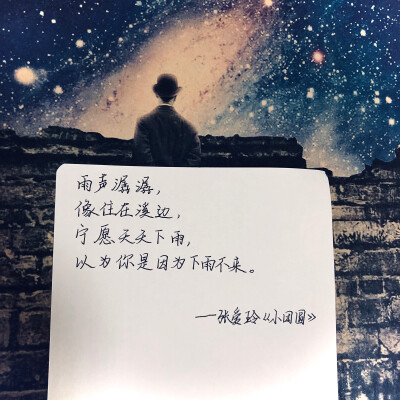 雨声潺潺,
像住在溪边,
宁愿天天下雨,
以为你是因为下雨不来。
——张爱玲《小团圆》